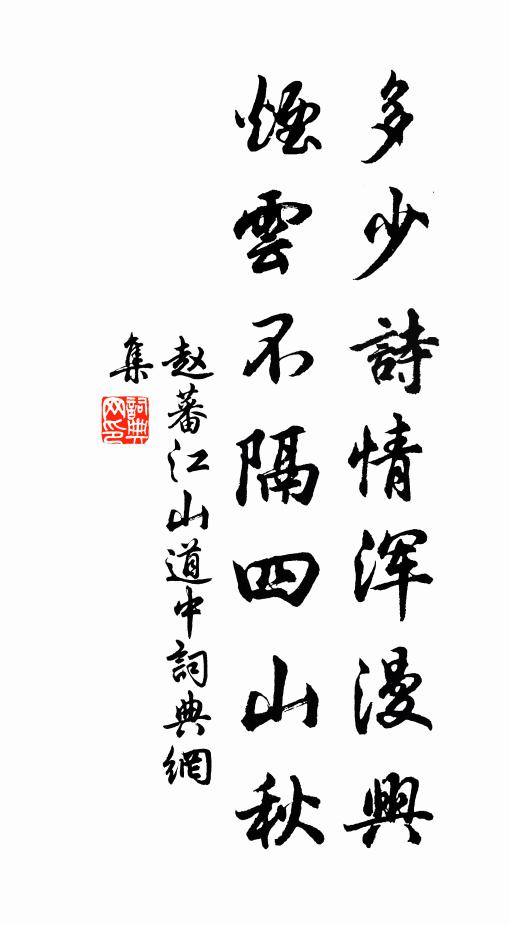 多少詩情浑漫興
煙雲不隔四山秋
赵蕃江山道中詞典網
集
詞典網印